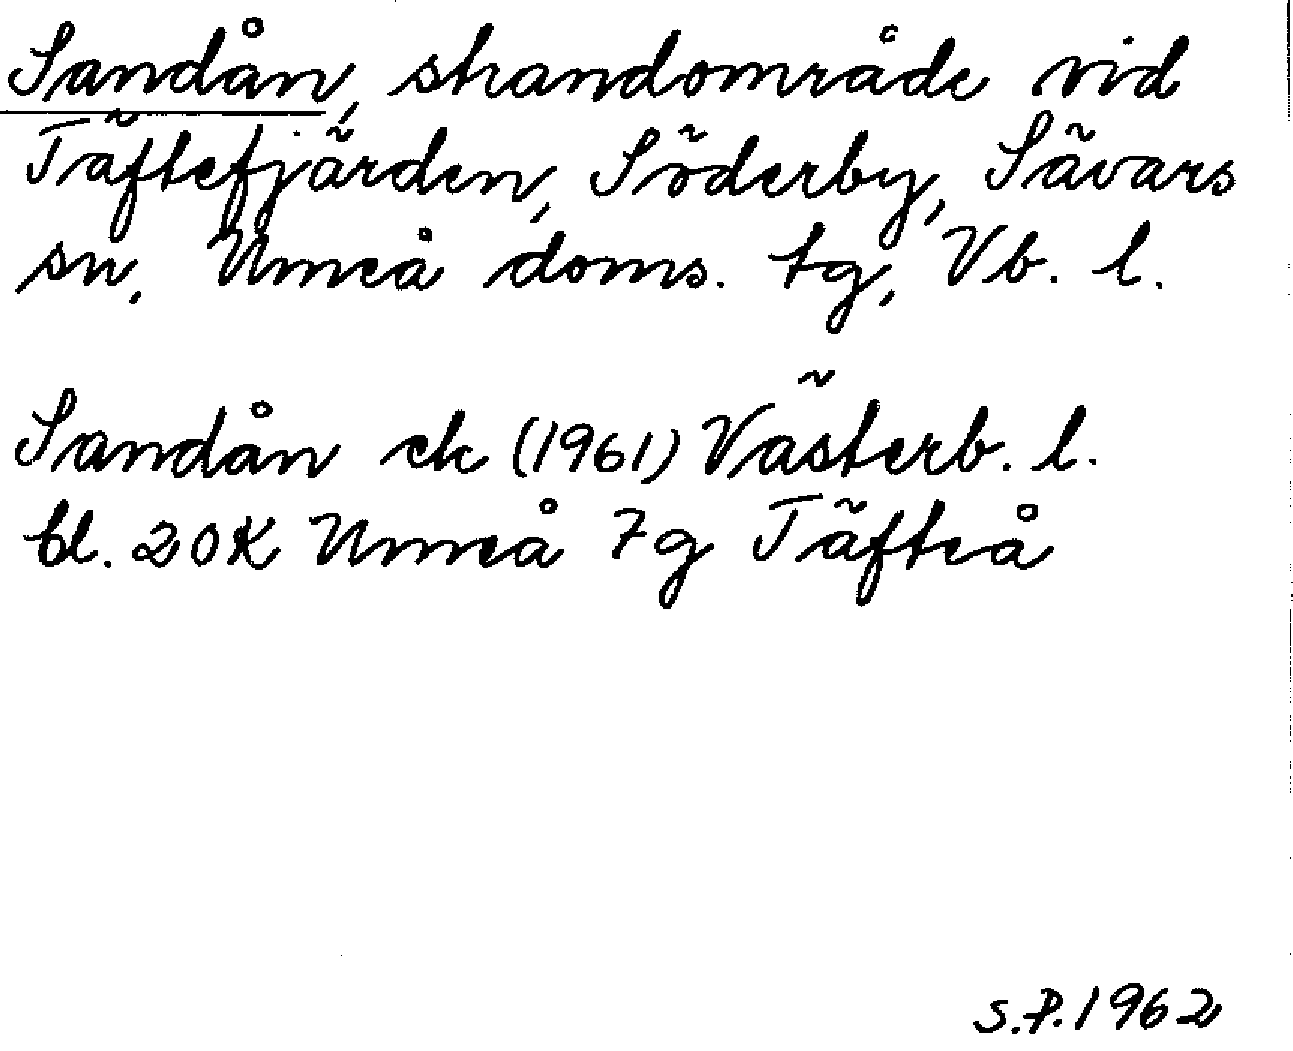 Sandån, strandområde vid
Täftefjärden, Söderby, Sävars
sn, Umeå doms. tg, Vb. l.
Sandån ek (1961) Västerb. l.
bl. 20K Umeå 7g Täfteå
S.P. 1962